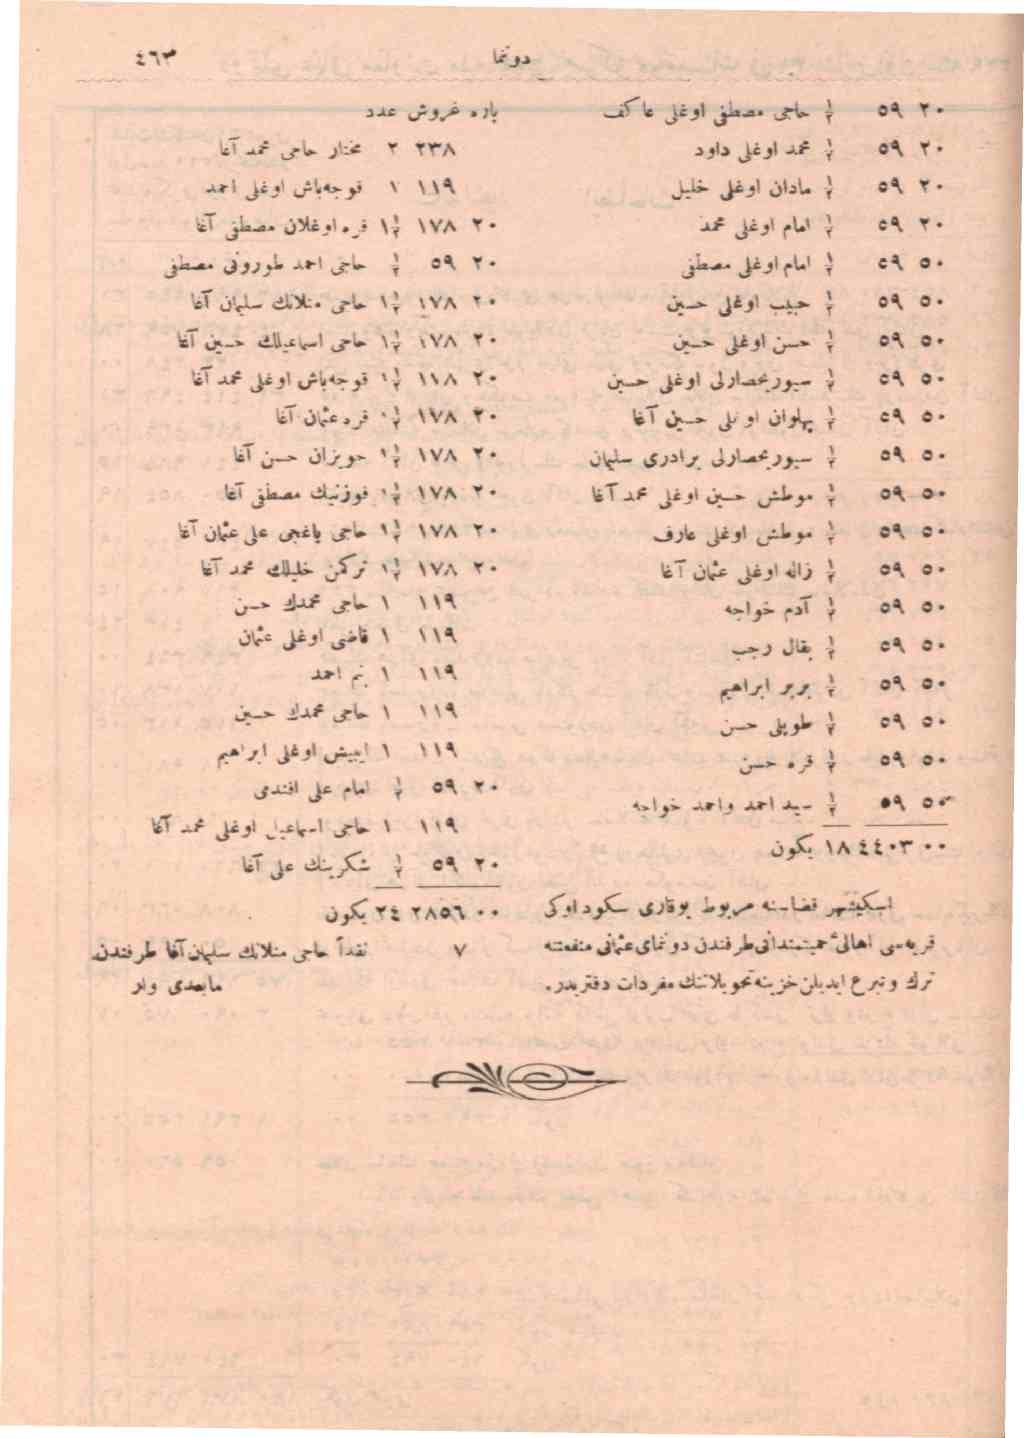 دوننما ٤٦٣
٢٠ ٥٩ ½ حاجى مصطفى اوغلى عاكف
٢٠ ٥٩ ½ محمد اوغلى داود
٢٠ ٥٩ ½ مادان اوغلى خليل
٢٠ ٥٩ ½ امام اوغلى محمد
٥٠ ٥٩ ½ امام اوغلى مصطفى
٥٠ ٥٩ ½ حبيب اوغلى حسين
٥٠ ٥٩ ½ حسن اوغلى حسين
٥٠ ٥٩ ½ سيوريحصارلى اوغلى حسين
٥٠ ٥٩ ½ پهلوان اوغلى حسين آغا
٥٠ ٥٩ ½ سيوريحصارلى برادرى سليمان
٥٠ ٥٩ ½ موطش حسين اوغلى محمد آغا
٥٠ ٥٩ ½ موطش اوغلى عارف
٥٠ ٥٩ ½ زاله اوغلى عثمان آغا
٥٠ ٥٩ ½ آدم خواجه
٥٠ ٥٩ ½ بقال رجب
٥٠ ٥٩ ½ بربر ابراهيم
٥٠ ٥٩ ½ طويلى حسن
٥٠ ٥٩ ½ قره حسن
٥٠ ٥٩ ½ سيد احمد واحمد خواجه
٠٠ ٤٤٠٣ ١٨ يكون
اسكيشهر قضاسنه مربوط يوقارى سكود اوكى
قريه‌سى اهالئ حميتمندانى طرفندن دوننماى عثمانى منفعتنه
ترك وتبرع ايديلن خزينه تحويلاتنك مفردات دفتريدر.
پاره غروش عدد
٢٣٨ ٢ مختار حاجى محمد آغا
١١٩ ١ قوجه‌باش اوغلى احمد
٢٠ ١٧٨ ١½ قره اوغلان مصطفى آغا
٢٠ ٥٩ ½ حاجى احمد طورونى مصطفى
٢٠ ١٧٨ ١½ حاجى منلانك سليمان آغا
٢٠ ١٧٨ ١½ حاجى اسماعيلك حسين آغا
٢٠ ١١٨ ١½ قوجه‌باش اوغلى محمد آغا
٢٠ ١٧٨ ١½ قره عثمان آغا
٢٠ ١٧٨ ١½ جويزان حسن آغا
٢٠ ١٧٨ ١½ قوزنيك مصطفى آغا
٢٠ ١٧٨ ١½ حاجى ياغجى على عثمان آغا
٢٠ ١٧٨ ١½ تركمن خليلك محمد آغا
١١٩ ١ حاجى محمدك حسن
١١٩ ١ قاضى اوغلى عثمان
١١٩ ١ احمد
١١٩ ١ حاجى محمدك حسين
١١٩ ١ ايبيش اوغلى ابراهيم
٢٠ ٥٩ ½ امام على افندى
١١٩ ١ حاجى اسماعيل اوغلى محمد آغا
٢٠ ٥٩ ½ شكرينك على آغا
٠٠ ٢٨٥٦ ٢٤ يكون
٧ نقداً حاجى منلانك سليمان آغا طرفندن
مابعدى وار